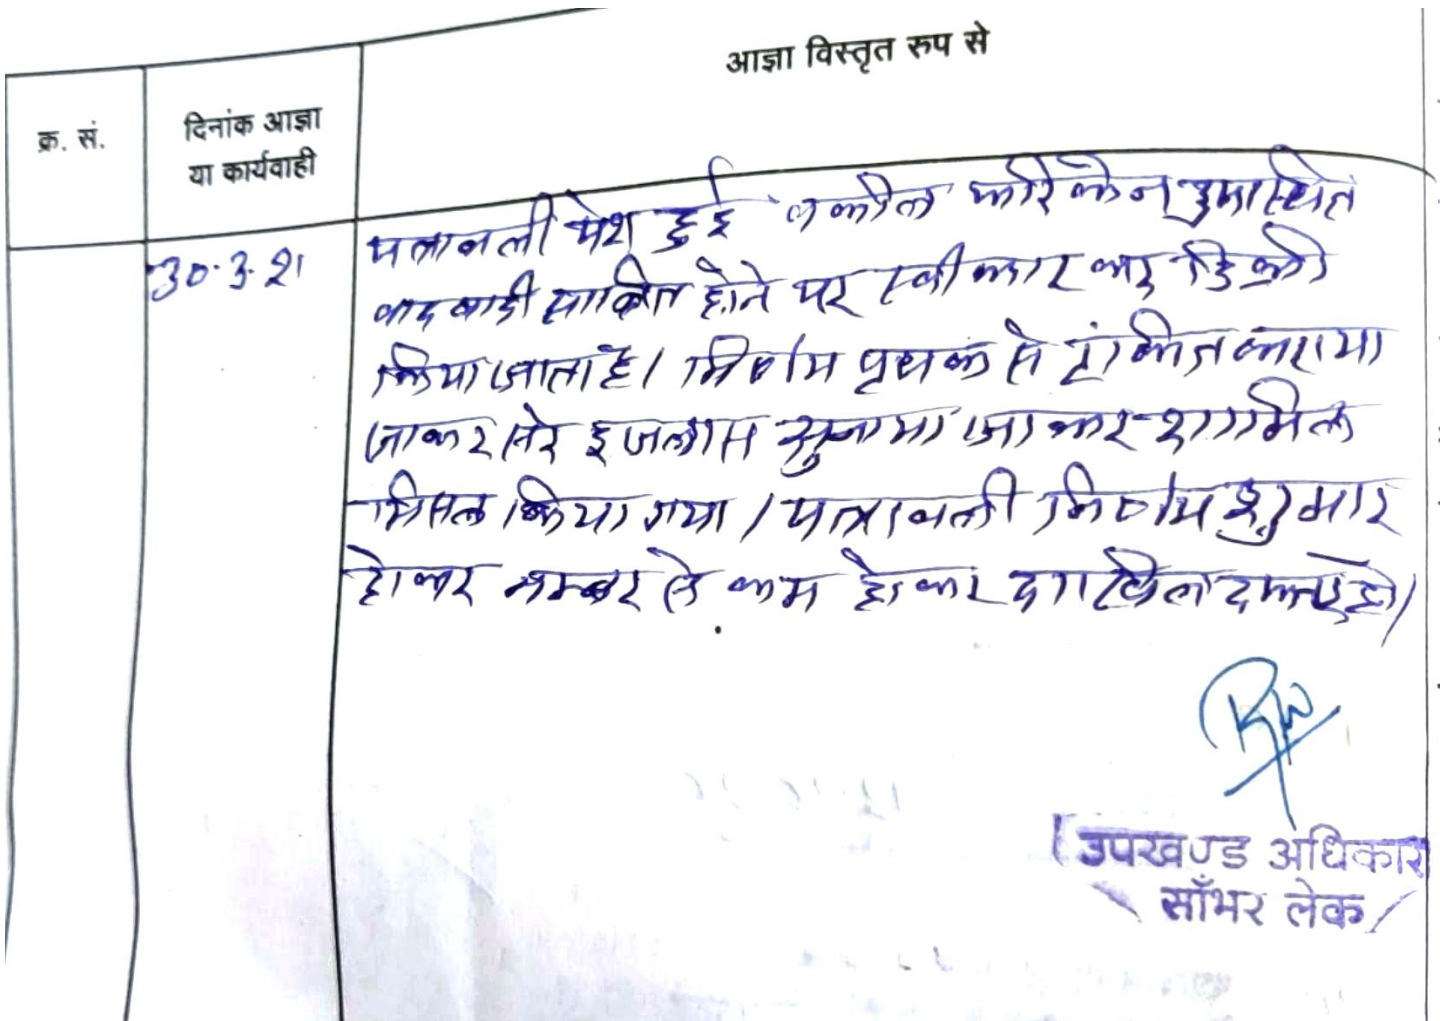 आज्ञा विस्तृत रुप से
क्र. सं.
दिनांक आज्ञा
या कार्यवाही
30.3.21
पत्रावली पेश हुई वकील फरिकेन उपस्थित
वाद वादी साबित होने पर स्वीकार कर डिक्री
किया जाता है। निर्णय पृथक से टंकित कराया
जाकर सरे इजलास सुनाया जाकर शामिल
मिसल किया गया। पत्रावली निर्णय शुमार
होकर नम्बर से कम होकर दाखिल दफ्तर हो।
उपखण्ड अधिकार
साँभर लेक